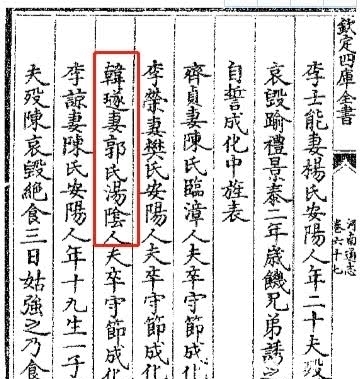 欽定四庫全書
河南通志
卷六十七
李士能妻楊氏安陽人年二十夫歿
哀毀踰禮景泰二年歲饑兄弟誘之
自誓成化中旌表
齊貞妻陳氏臨漳人夫卒守節成化
李榮妻樊氏安陽人夫卒守節成化
韓璲妻郭氏湯陰人夫卒守節成化
李諒妻陳氏安陽人年十九生一子
夫歿陳哀毀絶食三日姑強之乃食